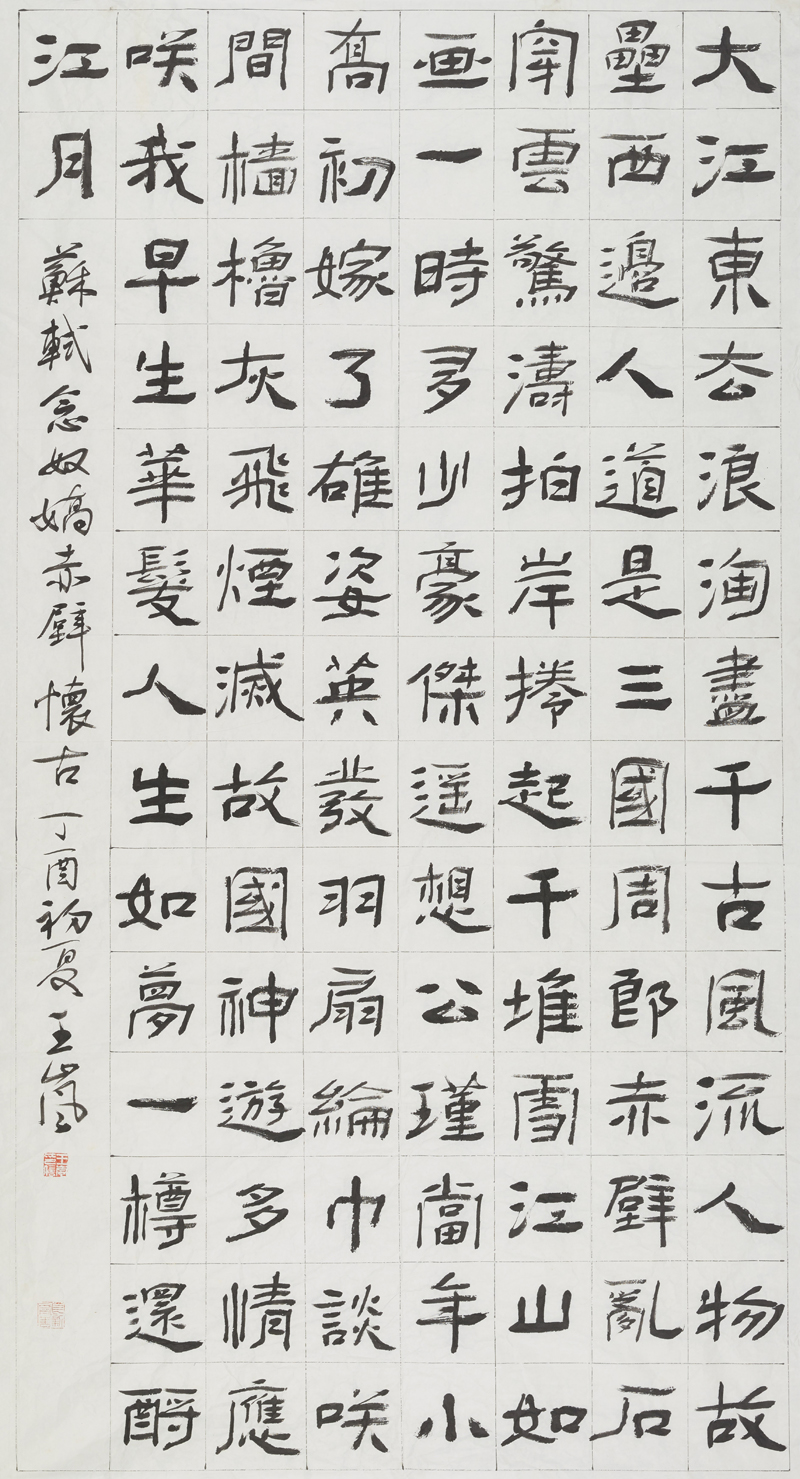 大江東去浪淘盡千古風流人物故
壘西邊人道是三國周郎赤壁亂石
穿雲驚濤拍岸捲起千堆雪江山如
画一時多少豪傑遥想公瑾當年小
喬初嫁了雄姿英發羽扇綸巾談咲
間檣櫓灰飛煙滅故國神遊多情應
咲我早生華髮人生如夢一樽還酹
江月
蘇軾念奴嬌赤壁懷古丁酉初夏王嵐